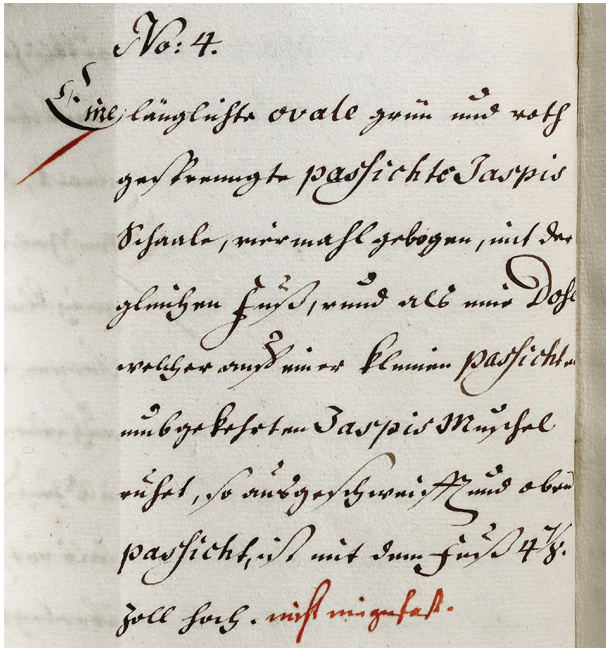 No: 4.
Eine, länglichte ovale grün und roth
gesprenngte passichte Jaspis
Schaale, viermahl gebogen, mit der
gleichen Fuß, rund als eine Dose
welcher auf einer kleinen passichten
umbgekehrten Jaspis Muschel
ruhet, so ausgeschweifft und oben
passicht, ist mit dem Fuß 4⅞.
Zoll hoch. nicht eingefast.